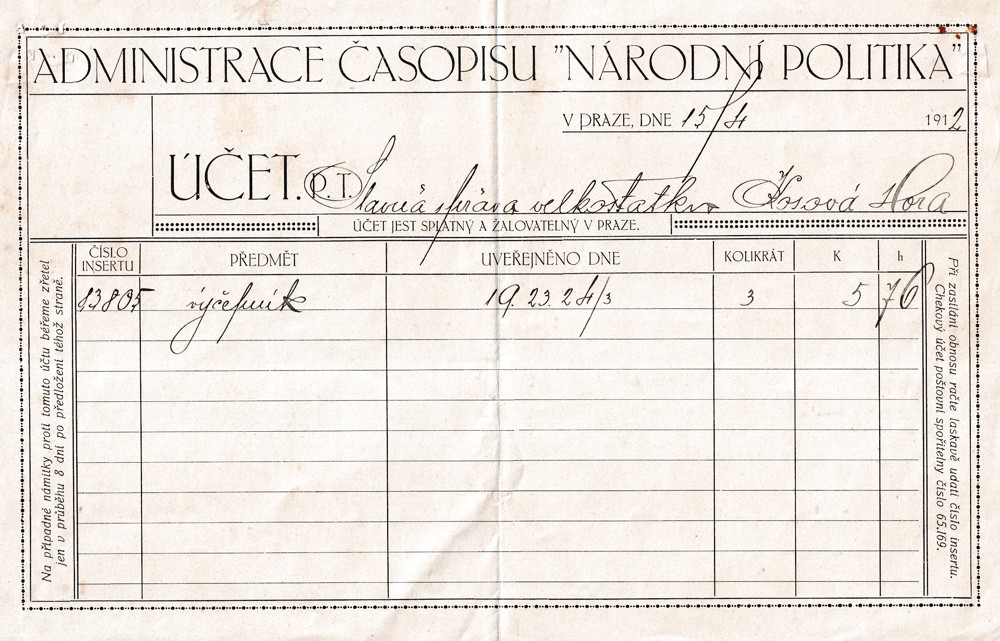 ADMINISTRACE ČASOPISU "NÁRODNÍ POLITIKA"
V PRAZE, DNE 15/4 1912
ÚČET. P. T. Slavná správa velkostatku Kosová Hora
ÚČET JEST SPLATNÝ A ŽALOVATELNÝ V PRAZE.
ČÍSLO INSERTU PŘEDMĚT UVEŘEJNĚNO DNE KOLIKRÁT K h
13805 výčepník 19. 23. 24/3 3 5 76
Na případné námitky proti tomuto účtu béřeme zřetel
jen v průběhu 8 dní po předložení téhož straně.
Při zasílání obnosu račte laskavě udati číslo insertu.
Chekový účet poštovní spořitelny číslo 65.169.